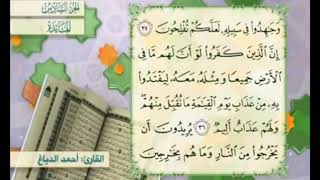 الجزء السادس
المائدة
وَجَـٰهِدُوا۟ فِى سَبِيلِهِۦ لَعَلَّكُمْ تُفْلِحُونَ ٣٥
إِنَّ ٱلَّذِينَ كَفَرُوا۟ لَوْ أَنَّ لَهُم مَّا فِى
ٱلْأَرْضِ جَمِيعًا وَمِثْلَهُۥ مَعَهُۥ لِيَفْتَدُوا۟
بِهِۦ مِنْ عَذَابِ يَوْمِ ٱلْقِيَـٰمَةِ مَا تُقُبِّلَ مِنْهُمْ
وَلَهُمْ عَذَابٌ أَلِيمٌ ٣٦ يُرِيدُونَ أَن
يَخْرُجُوا۟ مِنَ ٱلنَّارِ وَمَا هُم بِخَـٰرِجِينَ
القارئ: أحمد الدباغ